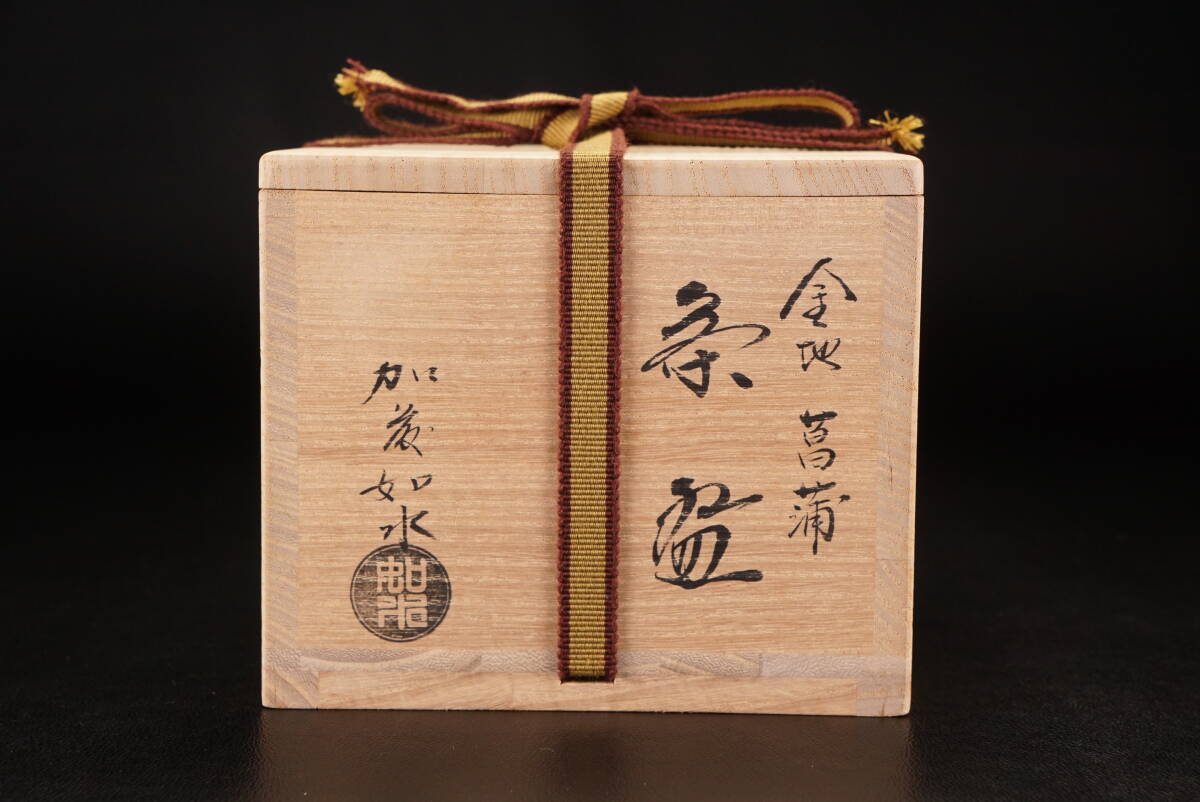 金地 菖蒲
茶盌
加藤如水